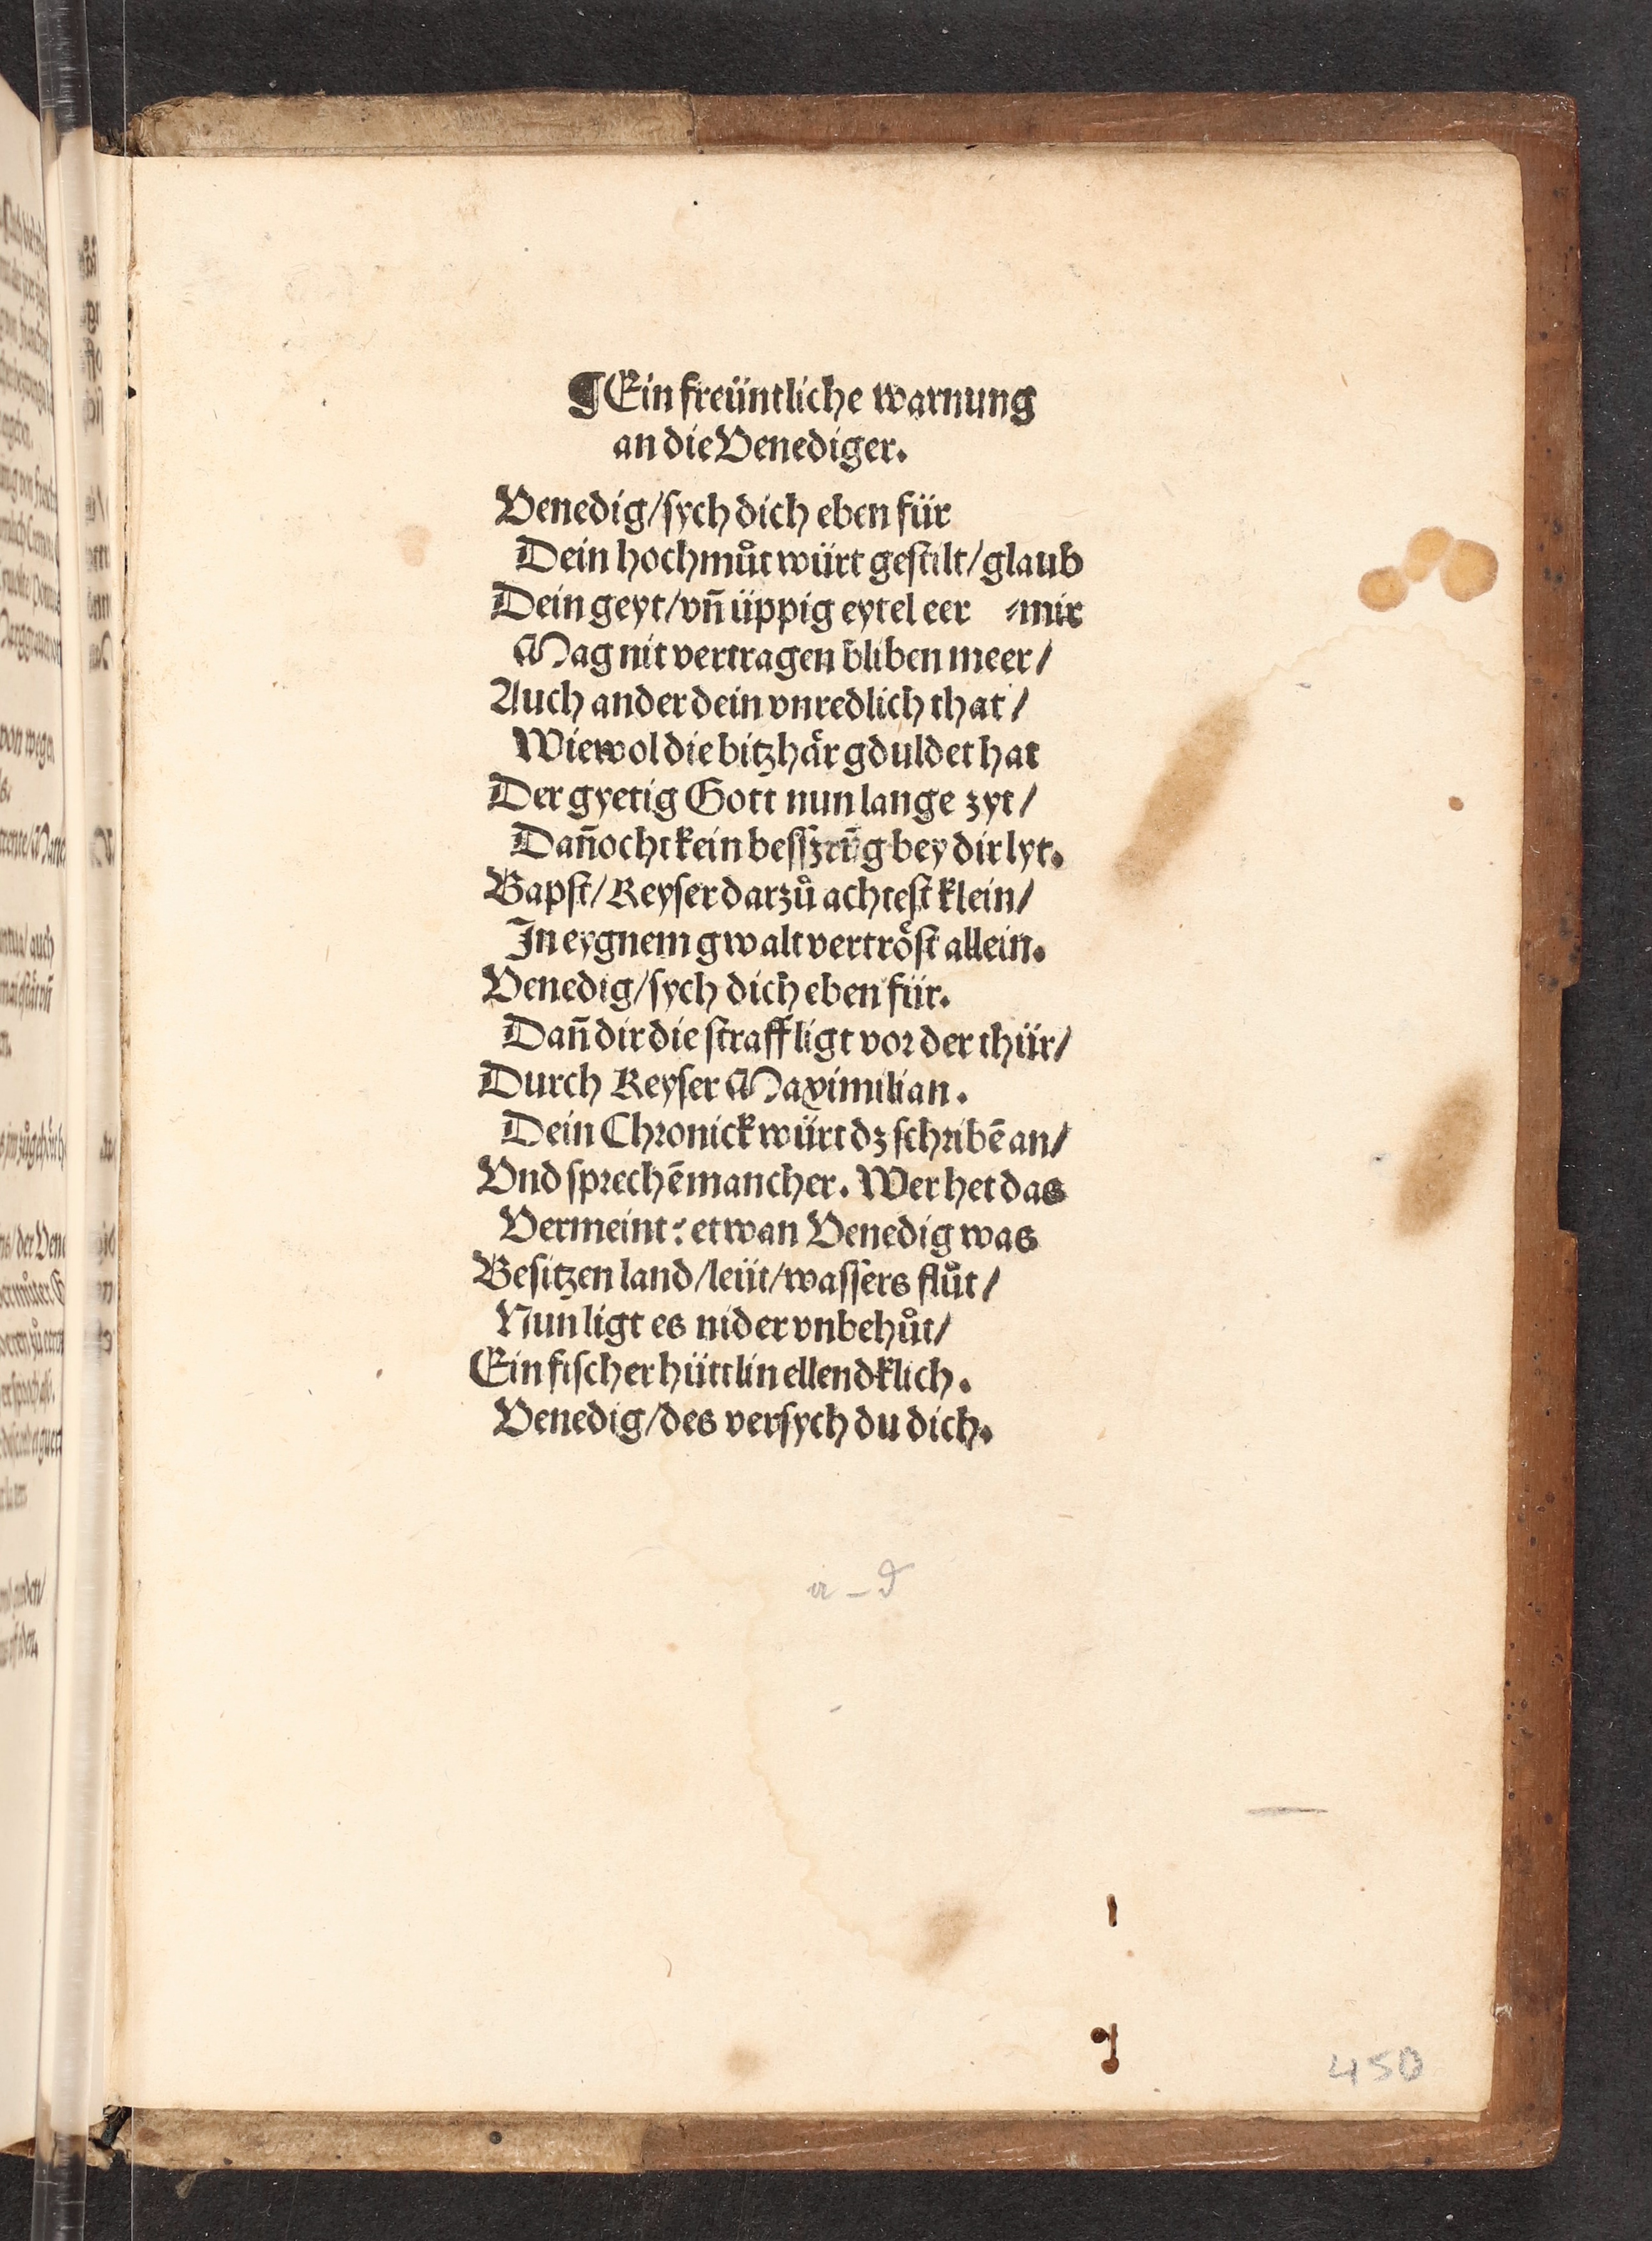 ¶Ein freüntliche warnung
an die Venediger.
Venedig/sych dich eben für
Dein hochmůt würt gestilt/glaub
Dein geyt/vñ üppig eytel eer ⸗mir
Mag nit vertragen bliben meer/
Auch ander dein vnredlich that/
Wiewol die bitzhär gduldet hat
Der gyetig Gott nun lange zyt/
Dañocht kein besszrūg bey dir lyt.
Bapst/Keyser darzů achtest klein/
In eygnem gwalt vertröst allein.
Venedig/sych dich eben für.
Dañ dir die straff ligt vor der thür/
Durch Keyser Maximilian.
Dein Chronick würt dz schribē an/
Vnd sprechē mancher. Wer het das
Vermeint: etwan Venedig was
Besitzen land/leüt/wassers flůt/
Nun ligt es nider vnbehůt/
Ein fischer hüttlin ellendklich.
Venedig/des versych du dich.
a-d
450